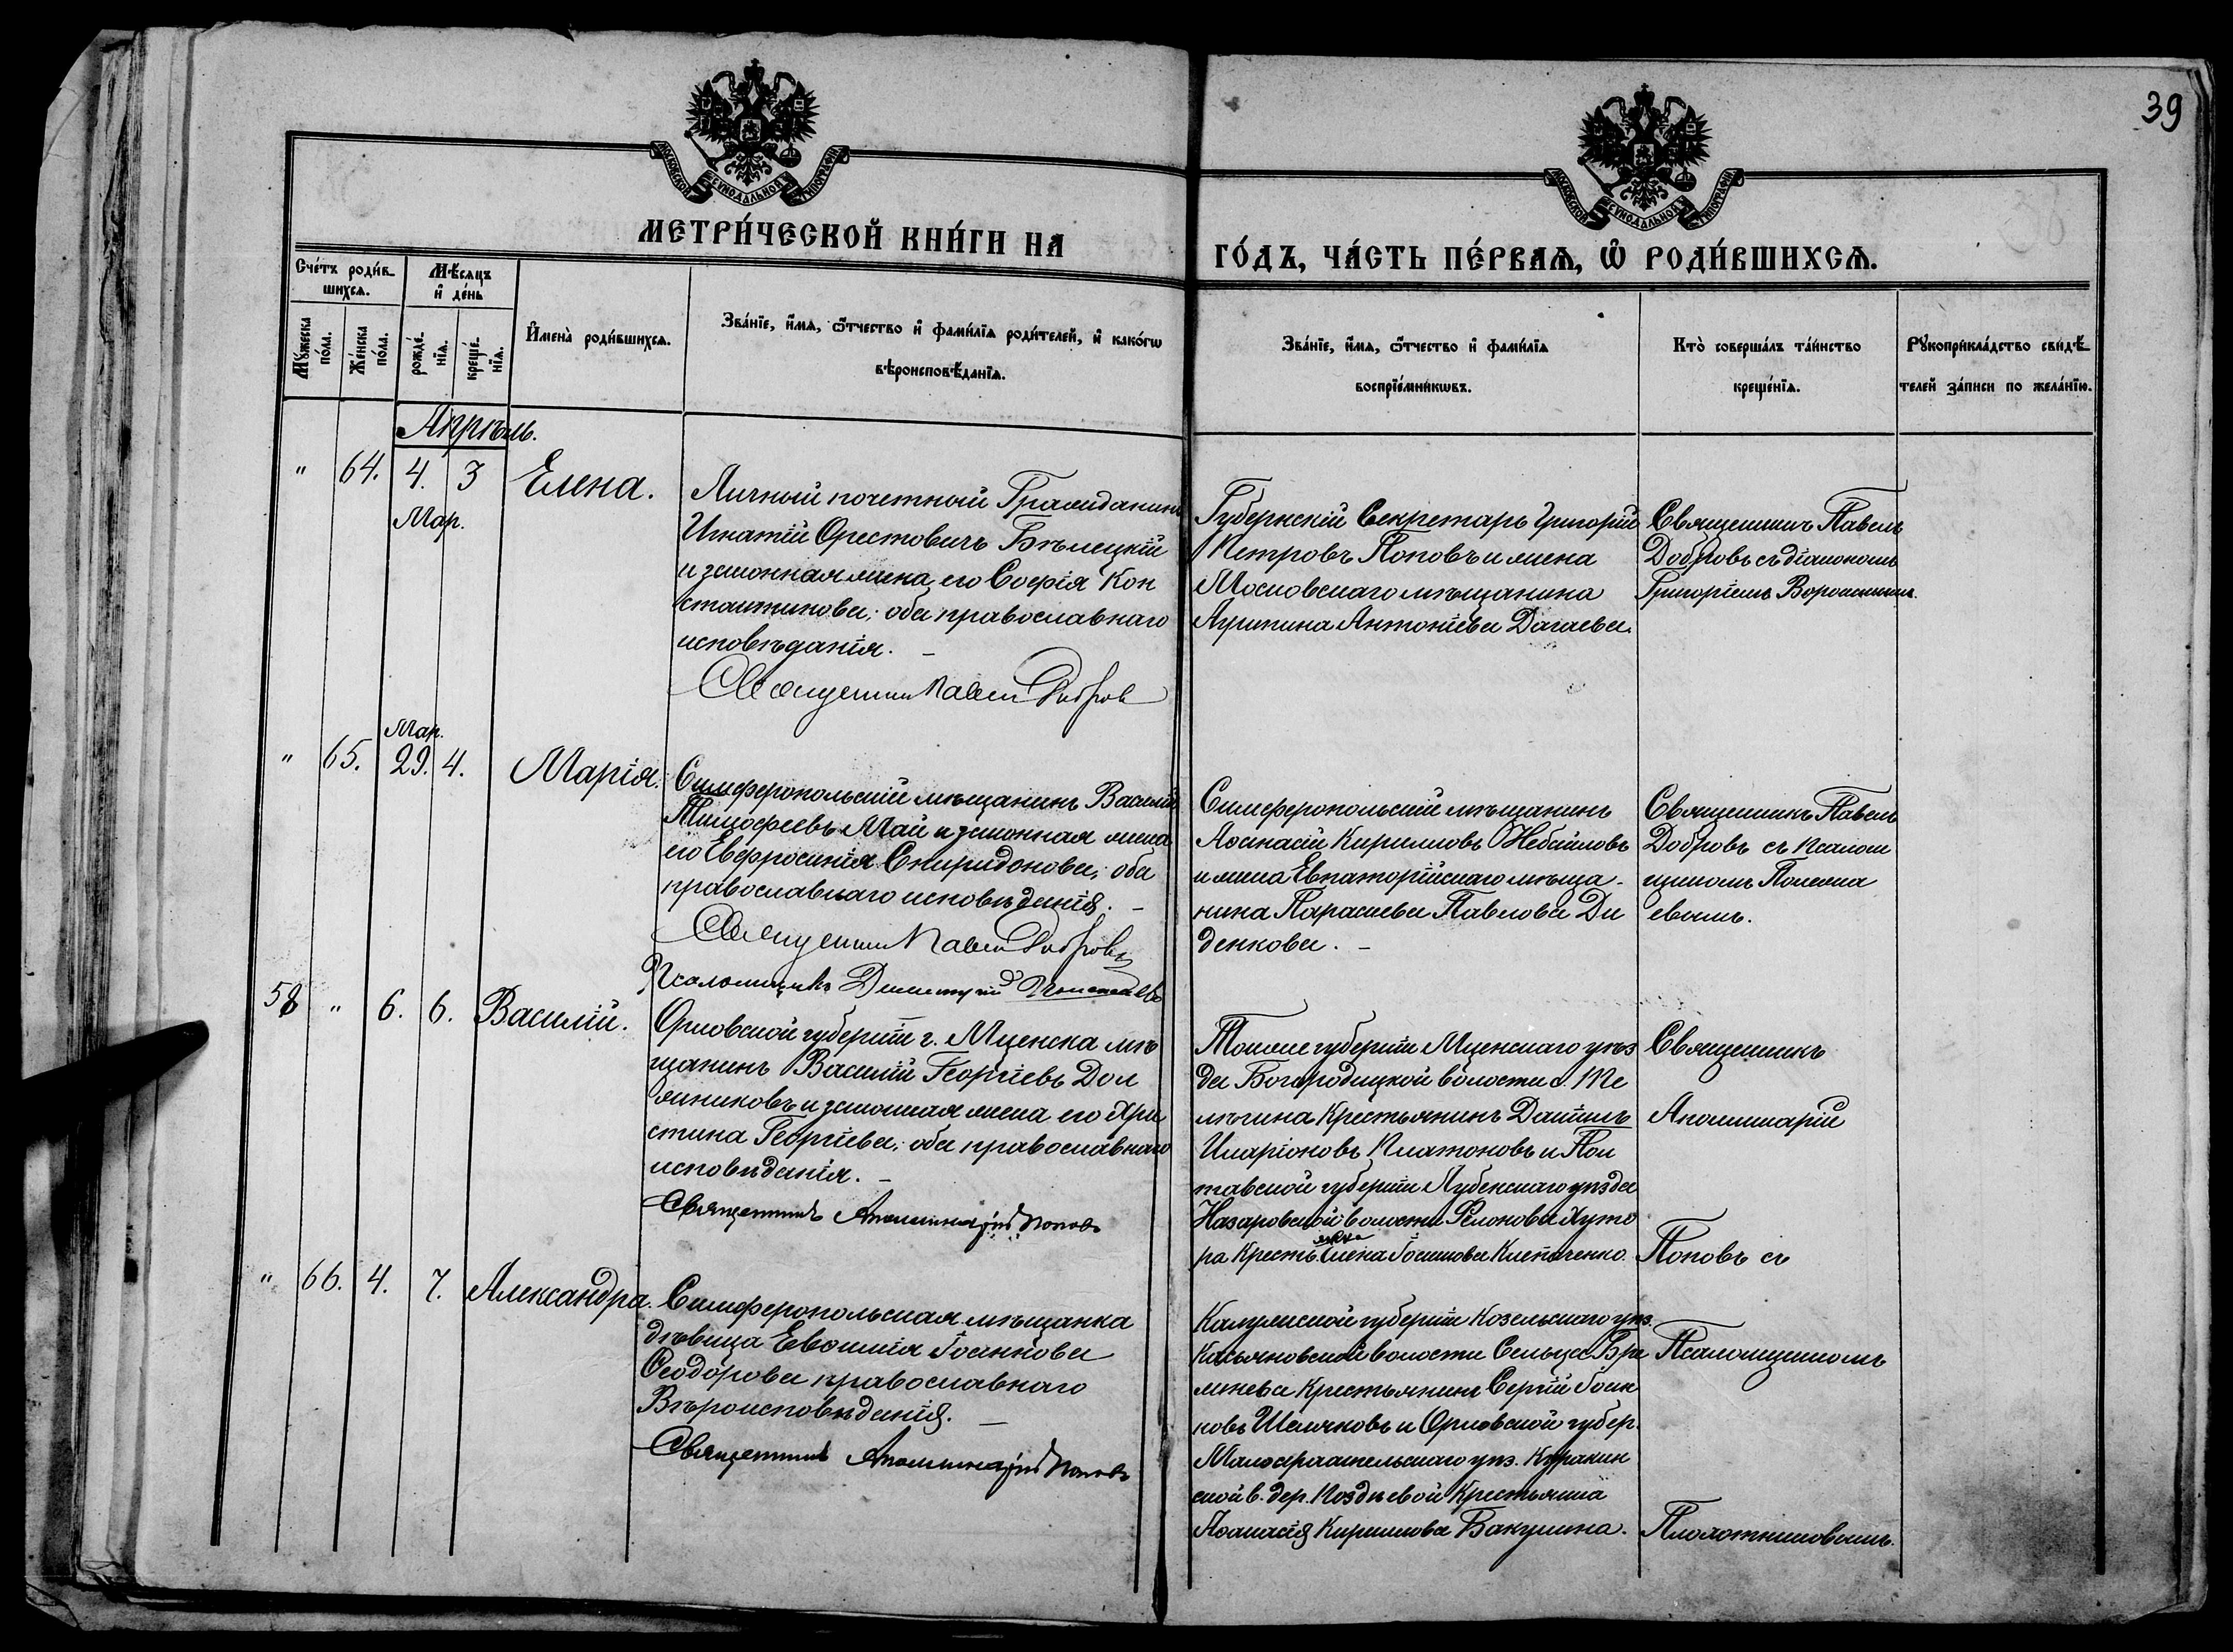 39
МОСКОВСКОЙ СѴНОДАЛЬНОЙ ТИПОГРАФІИ
МОСКОВСКОЙ СѴНОДАЛЬНОЙ ТИПОГРАФІИ
МЕТРИ́ЧЕСКОЙ КНИ́ГИ НА
ГО́ДЪ, ЧА́СТЬ ПЕ́РВАѦ, Ѡ РОДИ́ВШИХСѦ.
Сче́тъ роди́в-
шихсѧ.
Мѣ́сѧцъ
и҆ де́нь
Мꙋ́жеска
по́ла.
Же́нска
по́ла.
рожде́-
нїѧ.
креще́-
нїѧ.
И҆мена̀ роди́вшихсѧ.
Зва́нїе, и҆́мѧ, ѻ҆́тчество и҆ фами́лїѧ роди́телей, и҆ како́гѡ
вѣроисповѣ́данїѧ.
Зва́нїе, и҆́мѧ, ѻ҆́тчество и҆ фами́лїѧ
воспрїе́мникѡвъ.
Кто̀ соверша́лъ та́инство
креще́нїѧ.
Рꙋкоприкла́дство свидѣ́-
телей за́писи по жела́нїю.
Апрѣль.
" 64. 4. 3 Елена.
Мар.
Личный почетный Гражданинъ
Игнатій Орестовичъ Бѣлецкій
и законная жена его Софія Кон
стантинова; оба православнаго
исповѣданія. —
Священникъ Павелъ Добровъ
Губернскій Секретарь Григорій
Петровъ Поповъ и жена
Московскаго мѣщанина
Агрипина Антоніева Дагаева.
Священникъ Павелъ
Добровъ съ діакономъ
Григоріемъ
Мар.
" 65. 29. 4. Марія.
Симферопольскій мѣщанинъ Василій
Тимофеевъ Май и законная жена
его Евфросинія Спиридонова; оба
православнаго исповѣданія. —
Священникъ Павелъ Добровъ
Псаломщикъ Димитрій
Симферопольскій мѣщанинъ
Аѳанасій Кирилловъ
и жена Евпаторійскаго мѣща-
нина Параскева Павлова Ди
денкова. —
Священникъ Павелъ
Добровъ съ псалом
щикомъ
евымъ.
58 " 6. 6. Василій.
Орловской губерніи г. Мценска мѣ
щанинъ Василій Георгіевъ Дол
жниковъ и законная жена его Хри
стина Георгіева; оба православнаго
исповѣданія. —
Священникъ Аполлинарій Поповъ
Тойже губерніи Мценскаго уѣз
да Богородицкой волости с. Те
лѣгина Крестьянинъ Даніилъ
Иларіоновъ Платоновъ и Пол
тавской губерніи Лубенскаго уѣзда
Назаровской волости Хуто
ра Кресть. янка Елена
Священникъ
Аполлинарій
Поповъ съ
" 66. 4. 7. Александра.
Симферопольская мѣщанка
дѣвица Евѳимія Іоаннова
Ѳеодорова православнаго
Вѣроисповѣданія. —
Священникъ Аполлинарій Поповъ
Калужской губерніи Козельскаго уѣз.
волости Сельца
Крестьянинъ Сергій Іоан
новъ и Орловской губер.
Малоархангельскаго уѣз. Куракин
ской в. дер. Поздѣевой Крестьянка
Аѳанасія Кириллова Бакулина.
Псаломщикомъ
Плохотниковымъ.